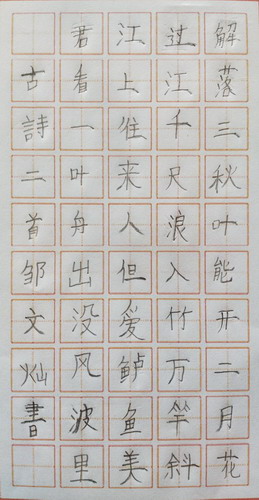 解落三秋叶能开二月花
过江千尺浪入竹万竿斜
江上往来人但爱鲈鱼美
君看一叶舟出没风波里
古詩二首邹文灿書